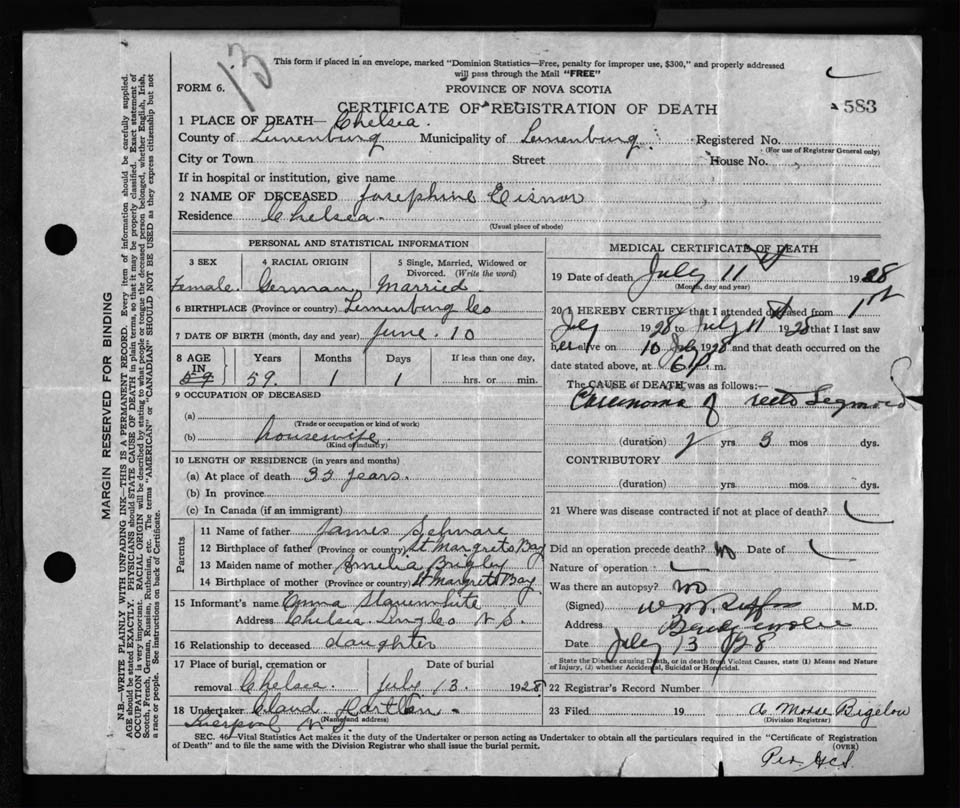 13
This form if placed in an envelope, marked "Dominion Statistics—Free, penalty for improper use, $300," and properly addressed
will pass through the Mail "FREE"
FORM 6.
PROVINCE OF NOVA SCOTIA
CERTIFICATE OF REGISTRATION OF DEATH
583
1 PLACE OF DEATH— Chelsea.
County of Lunenburg Municipality of Lunenburg. Registered No.
(For use of Registrar General only)
City or Town Street House No.
If in hospital or institution, give name
2 NAME OF DECEASED Josephine Eisnor
Residence Chelsea.
(Usual place of abode)
PERSONAL AND STATISTICAL INFORMATION
3 SEX 4 RACIAL ORIGIN 5 Single, Married, Widowed or Divorced. (Write the word)
Female. German Married.
6 BIRTHPLACE (Province or country) Lunenburg Co
7 DATE OF BIRTH (month, day and year) June. 10
8 AGE IN Years Months Days If less than one day,
59 59. 1 1 hrs. or min.
9 OCCUPATION OF DECEASED
(a)
(Trade or occupation or kind of work)
(b) housewife
(Kind of industry)
10 LENGTH OF RESIDENCE (in years and months)
(a) At place of death 35 years.
(b) In province
(c) In Canada (if an immigrant)
Parents
11 Name of father James
12 Birthplace of father (Province or country) St Margrets Bay
13 Maiden name of mother Amelia Brigley
14 Birthplace of mother (Province or country) St Margrets Bay
15 Informant's name Emma
Address Chelsea Lun Co N. S.
16 Relationship to deceased daughter
17 Place of burial, cremation or removal Date of burial
Chelsea. July 13. 1928
18 Undertaker
(Name and address)
Liverpool N. S.
MEDICAL CERTIFICATE OF DEATH
19 Date of death July 11 1928
(Month, day and year)
20 I HEREBY CERTIFY that I attended deceased from 1st
July 1928 to July 11 1928 that I last saw
her alive on 10 July 1928 and that death occurred on
date stated above, at 6 P. m.
The CAUSE of DEATH was as follows:—
Carcinoma of recto Sigmoid
(duration) yrs. 3 mos. dys.
CONTRIBUTORY
(duration) yrs. mos. dys.
21 Where was disease contracted if not at place of death?
Did an operation precede death? no Date of
Nature of operation
Was there an autopsy? no
(Signed) M.D.
Address
Date July 13 1928
State the Disease causing Death, or in death from Violent Causes, state (1) Means and Nature
of Injury, (2) whether Accidental, Suicidal or Homicidal.
22 Registrar's Record Number
23 Filed 19 A Morse Bigelow
(Division Registrar)
SEC. 46—Vital Statistics Act makes it the duty of the Undertaker or person acting as Undertaker to obtain all the particulars required in the "Certificate of Registration
of Death" and to file the same with the Division Registrar who shall issue the burial permit.
(OVER)
Per
MARGIN RESERVED FOR BINDING
N.B.—WRITE PLAINLY WITH UNFADING INK—THIS IS A PERMANENT RECORD. Every item of information should be carefully supplied.
AGE should be stated EXACTLY. PHYSICIANS should STATE CAUSE OF DEATH in plain terms, so that it may be properly classified. Exact statement of
OCCUPATION is very important. RACIAL ORIGIN will be described by stating to what people or tongue the deceased person belonged, whether English, Irish,
Scotch, French, German, Russian, Ruthenian, etc. The terms "AMERICAN" or "CANADIAN" SHOULD NOT BE USED as they express citizenship but not
a race or people. See instructions on back of Certificate.